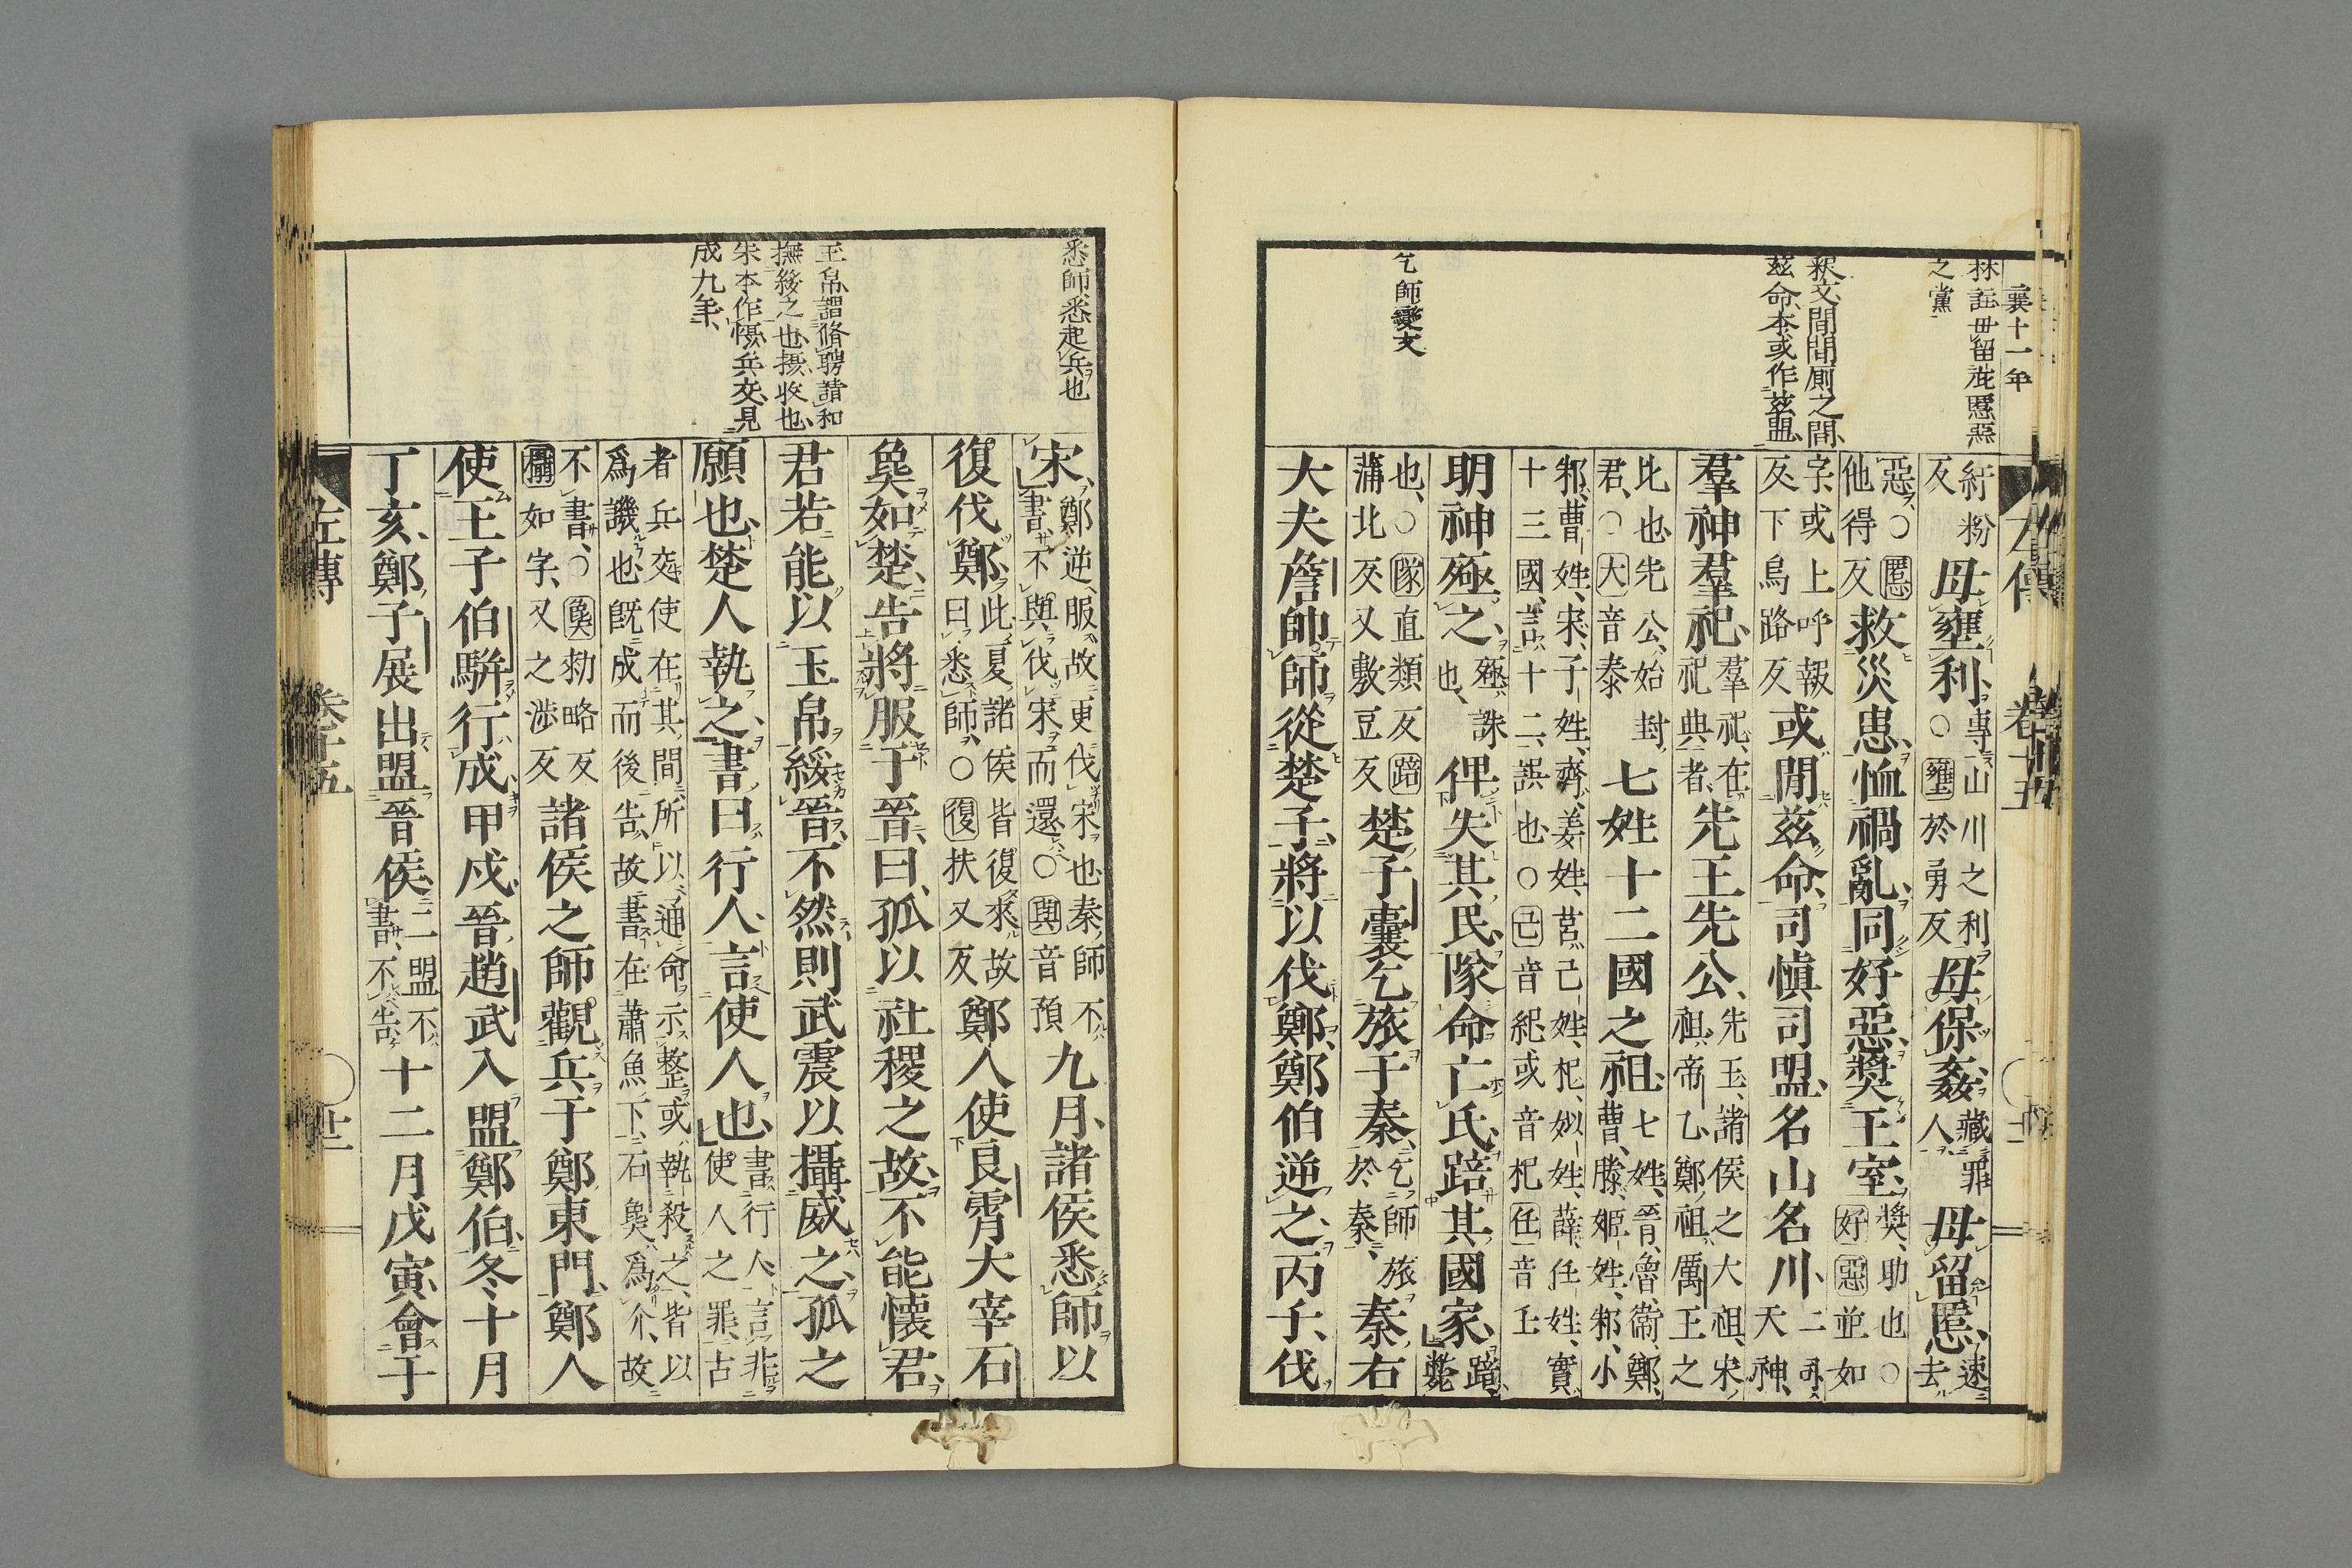 襄十一年
林註毋留慝惡
之黨
釈文間間厠之間
茲命本或作茲盟
乞師變文
左傳 卷十五
紆粉反毋壅利專山川之利○壅於勇反毋保姦藏罪人毋留慝速去
惡○慝他得反救災患恤禍亂同好惡奬王室奬助也○好惡並如
字或上呼報反下烏路反或閒茲命司愼司盟名山名川二司天神
羣神羣祀羣祀在祀典者先王先公先王諸侯之大祖宋祖帝乙鄭祖厲王之
比也先公始封君○大音泰七姓十二國之祖七姓晉魯衞鄭曹滕姬姓邾小
邾曹姓宋子姓齊姜姓莒己姓杞姒姓薛任姓實十三國言十二誤也○己音紀或音杞任音壬
明神殛之殛誅也俾失其民隊命亡氏踣其國家踣斃
也○隊直類反踣蒲北反又敷豆反楚子囊乞旅于秦乞師旅於秦秦右
大夫詹帥師從楚子將以伐鄭鄭伯逆之丙子伐
悉師悉起兵也
玉帛謂脩聘請和
撫綏之也攝收也
朱本作懾兵交見
成九年
宋鄭逆服故更伐宋也秦師不書不與伐宋而還○與音預九月諸侯悉師以
復伐鄭此夏諸侯皆復來故曰悉師○復扶又反鄭人使良霄大宰石
㚟如楚告將服于晉曰孤以社稷之故不能懷君
君若能以玉帛綏晉不然則武震以攝威之孤之
願也楚人執之書曰行人言使人也書行人言非使人之罪古
者兵交使在其間所以通命示整或執殺之皆以爲譏也旣成而後告故書在蕭魚下石㚟爲介故
不書○㚟勑略反攝如字又之涉反諸侯之師觀兵于鄭東門鄭人
使王子伯駢行成甲戌晉趙武入盟鄭伯冬十月
丁亥鄭子展出盟晉侯二盟不書不告十二月戊寅會于
左傳 卷十五 廿二